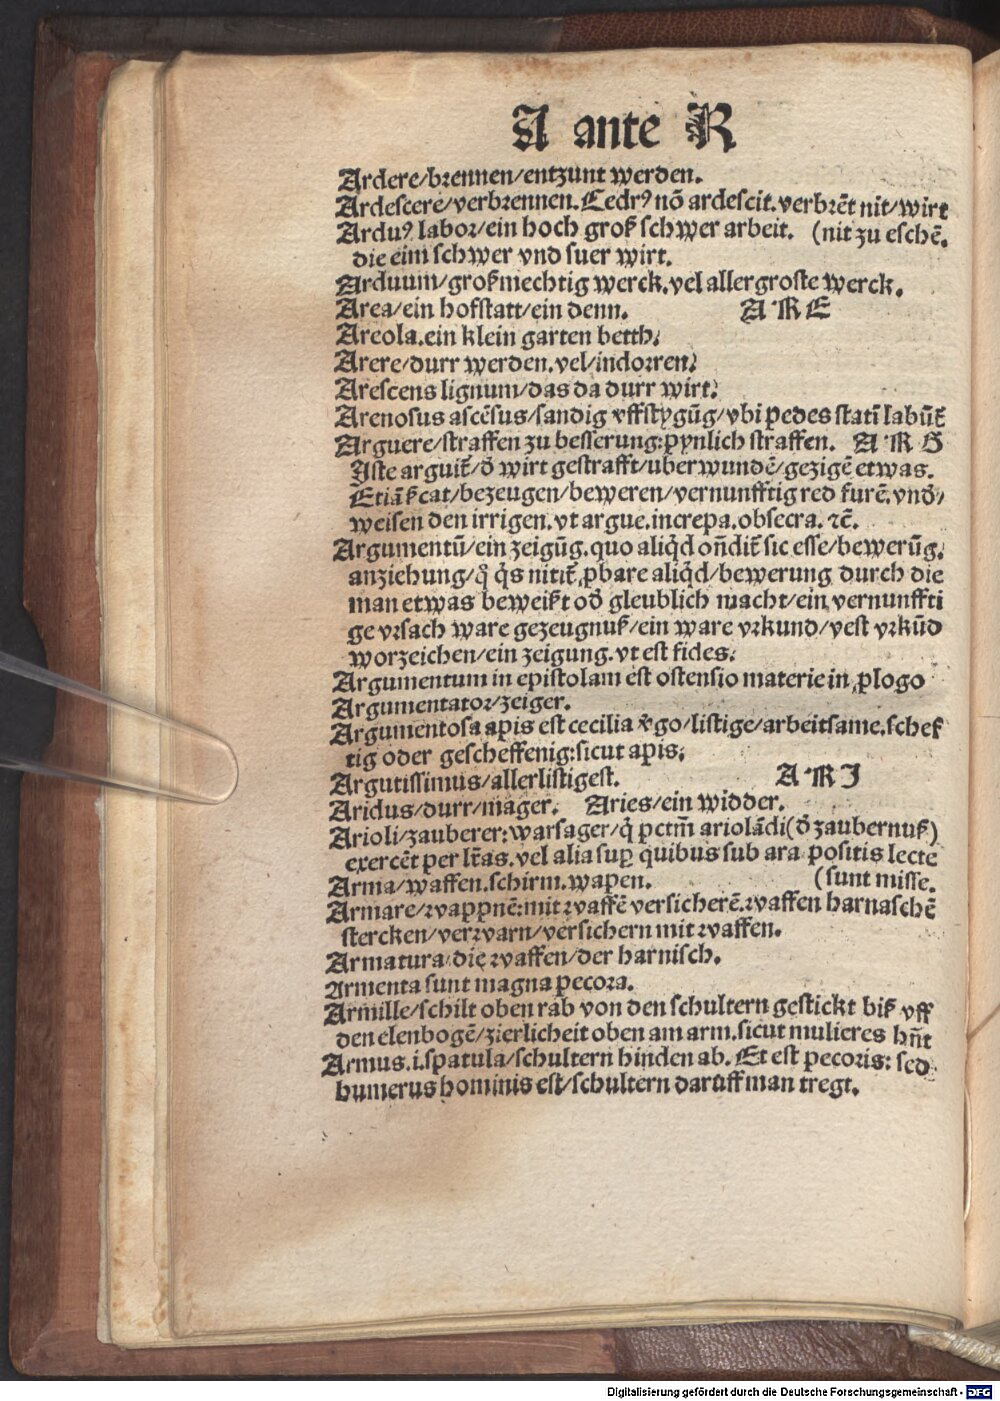 A ante R
Ardere/brennen/entzunt werden.
Ardescere/verbrennen. Cedrꝰ nō ardescit. verbrēt nit/wirt
Arduꝰ labor/ein hoch groß schwer arbeit. (nit zu eschē.
die eim schwer vnd suer wirt.
Arduum/großmechtig werck. vel aller groste werck.
Area/ein hofstatt/ein denn. A R E
Areola. ein klein garten betth.
Arere/durr werden. vel/indorren.
Arescens lignum/das da durr wirt.
Arenosus ascēsus/sandig vffstygūg/vbi pedes statī labūt̄
Arguere/straffen zu besserung: pynlich straffen. A R G
Iste arguit̄/d̄ wirt gestrafft/uberwundē/gezigē etwas.
Etiā ſ̄cat/bezeugen/beweren/vernunfftig red furē. vnd̄/
weisen den irrigen. vt argue. increpa. obsecra. ⁊c̄.
Argumentū/ein zeigūg. quo aliq̇d on̄dit̄ sic esse/bewerūg.
anziehung/q̊ q̇s nitit̄ ꝓbare aliq̇d/bewerung durch die
man etwas beweißt od̄ gleublich macht/ein vernunffti
ge vrsach ware gezeugnuß/ein ware vrkund/vest vrkūd
worzeichen/ein zeigung. vt est fides.
Argumentum in epistolam est ostensio materie in ꝓlogo
Argumentator/zeiger.
Argumentosa apis est cecilia v̄go/listige/arbeitsame. schef
tig oder gescheffenig: sicut apis.
Argutissimus/allerlistigest. A R I
Aridus/durr/mager. Aries/ein widder.
Arioli/zauberer: warsager/q̇ pctm̄ ariolādi (d̄ zaubernuß)
exercēt per lr̄as. vel alia suꝑ quibus sub ara positis lecte
Arma/waffen. schirm. wapen. (sunt misse.
Armare/wappnē: mit waffē versicherē. waffen harnaschē
stercken/verwarn/versichern mit waffen.
Armatura/die waffen/der harnisch.
Armenta sunt magna pecora.
Armille/schilt oben rab von den schultern gestickt biß vff
den elenbogē/zierlicheit oben am arm. sicut mulieres hn̄t
Armus. i. spatula/schultern hinden ab. Et est pecoris: sed
humerus hominis est/schultern daruff man tregt.
Digitalisierung gefördert durch die Deutsche Forschungsgemeinschaft - DFG